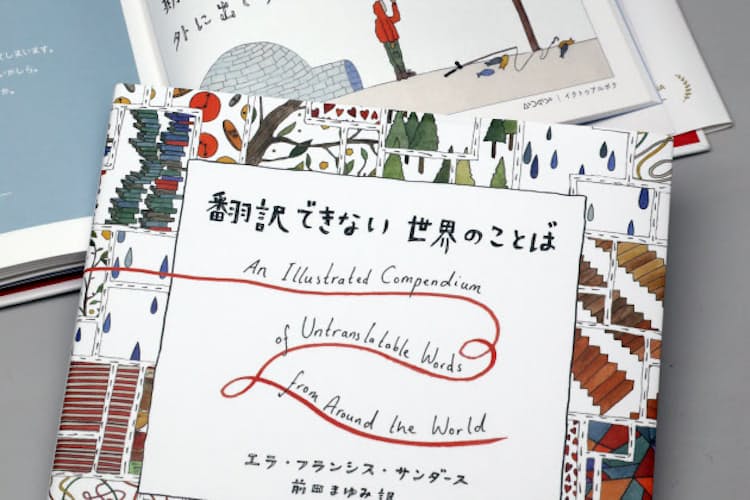 てしまいます。
いかしら。
か。
外に出て
イクトゥアルポク
翻訳できない 世界のことば
An Illustrated Compendium
of Untranslatable Words
from Around the World
エラ・フランシス・サンダース
前田まゆみ 訳